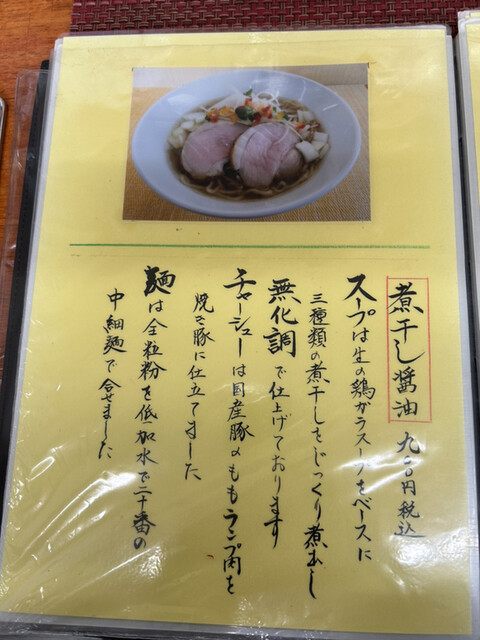 煮干し醤油 九〇〇円税込
スープは生の鶏ガラスープをベースに
三種類の煮干しをじっくり煮出し
無化調で仕上げております
チャーシューは国産豚のももランプ肉を
焼き豚に仕立てました
麺は全粒粉を低加水で二十番の
中細麺で合せました